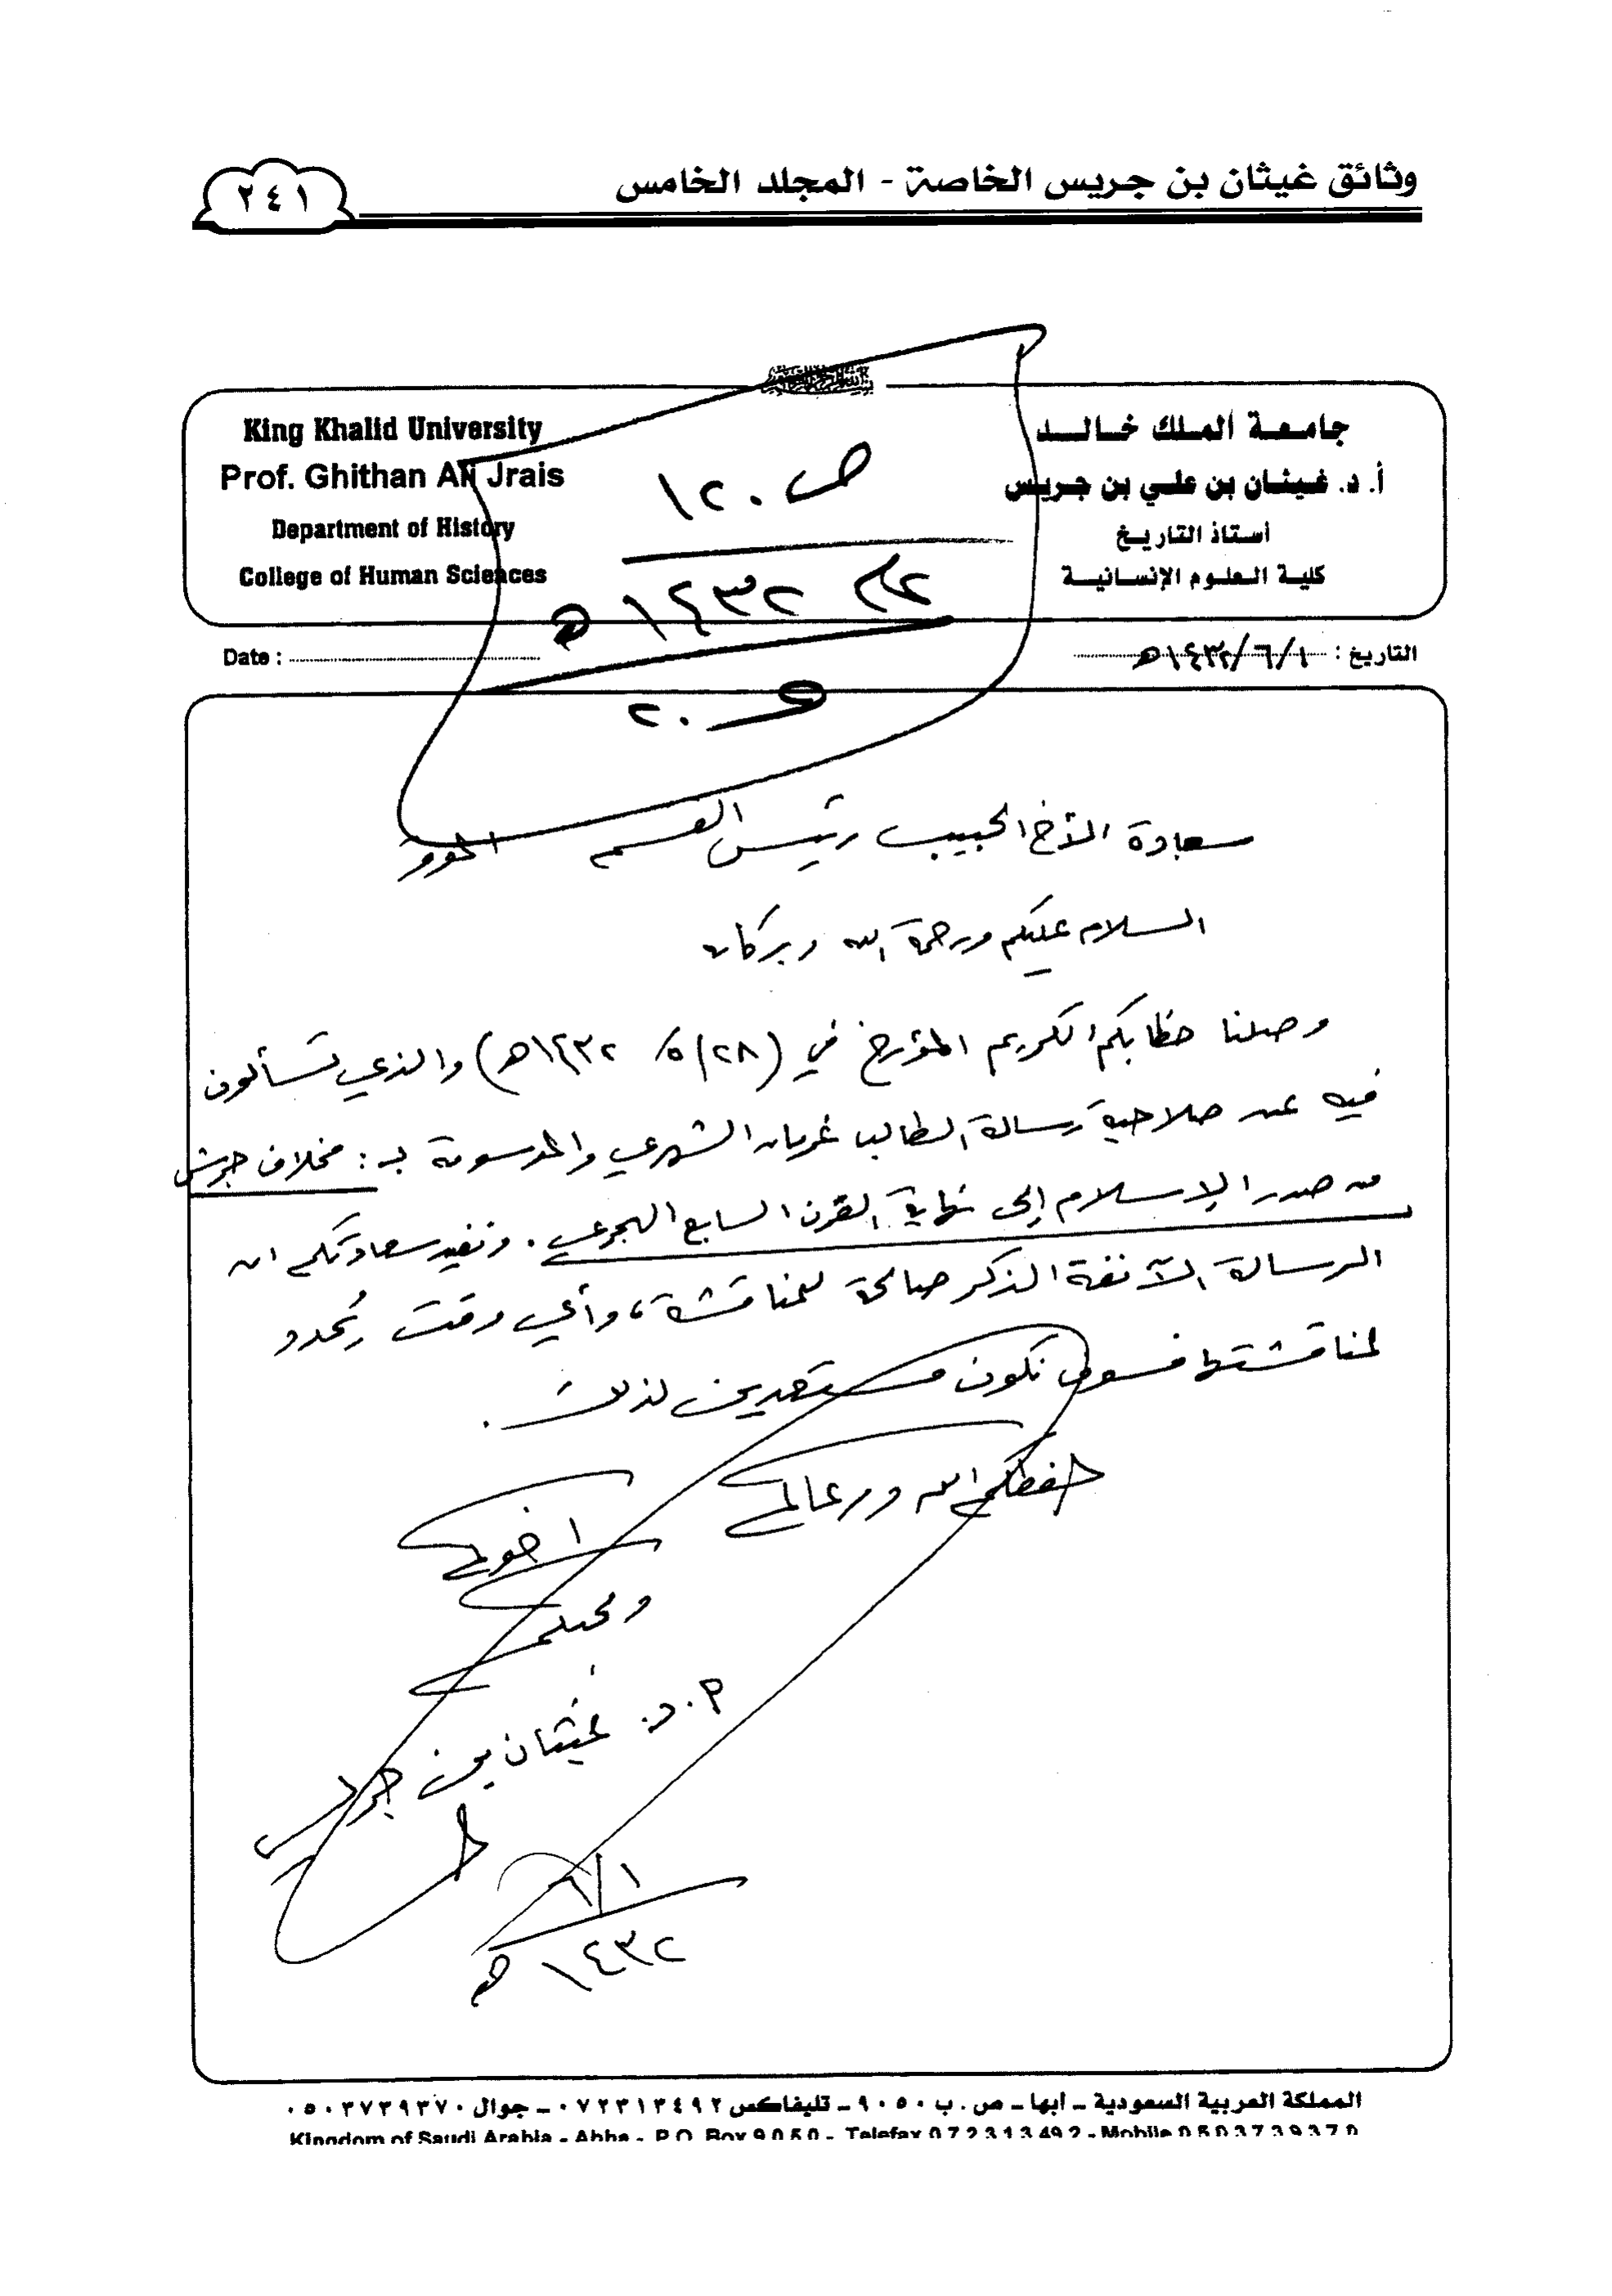 وثائق غيثان بن جريس الخاصة - المجلد الخامس
٢٤١
جامعة الملك خالد
أ. د. غيثان بن علي بن جريس
أستاذ التاريخ
كلية العلوم الإنسانية
King Khalid University
Prof. Ghithan Ali Jrais
Department of History
College of Human Sciences
ص ١٢٠
١٤٣٢ هـ
التاريخ : ١/٦/١٤٣٢هـ
Date :
سعادة الأخ الحبيب رئيس القسم الموقر
السلام عليكم ورحمة الله وبركاته
وصلنا خطابكم الكريم المؤرخ في (٢٨/٥/١٤٣٢هـ) والذي تسألون
فيه عن صلاحية رسالة الطالب غرمان الشهري والموسومة بـ : مخلاف جرش
من صدر الإسلام إلى نهاية القرن السابع الهجري . ونفيد سعادتكم ان
الرسالة الآنفة الذكر صالحة للمناقشة، وأي وقت يُحدد
لمناقشتها فسوف نكون مستعدين لذلك .
حفظكم الله ورعاكم
اخوكم
ومحبكم
أ. د. غيثان بن جريس
١/٦
١٤٣٢ هـ
المملكة العربية السعودية ـ أبها ـ ص . ب ٩٠٥٠ ـ تليفاكس ٠٧٢٣١٣٤٩٢ ـ جوال ٠٥٠٣٧٣٩٣٧٠
Kingdom of Saudi Arabia - Abha - P.O. Box 9050 - Telefax 072313492 - Mobile 0503739370